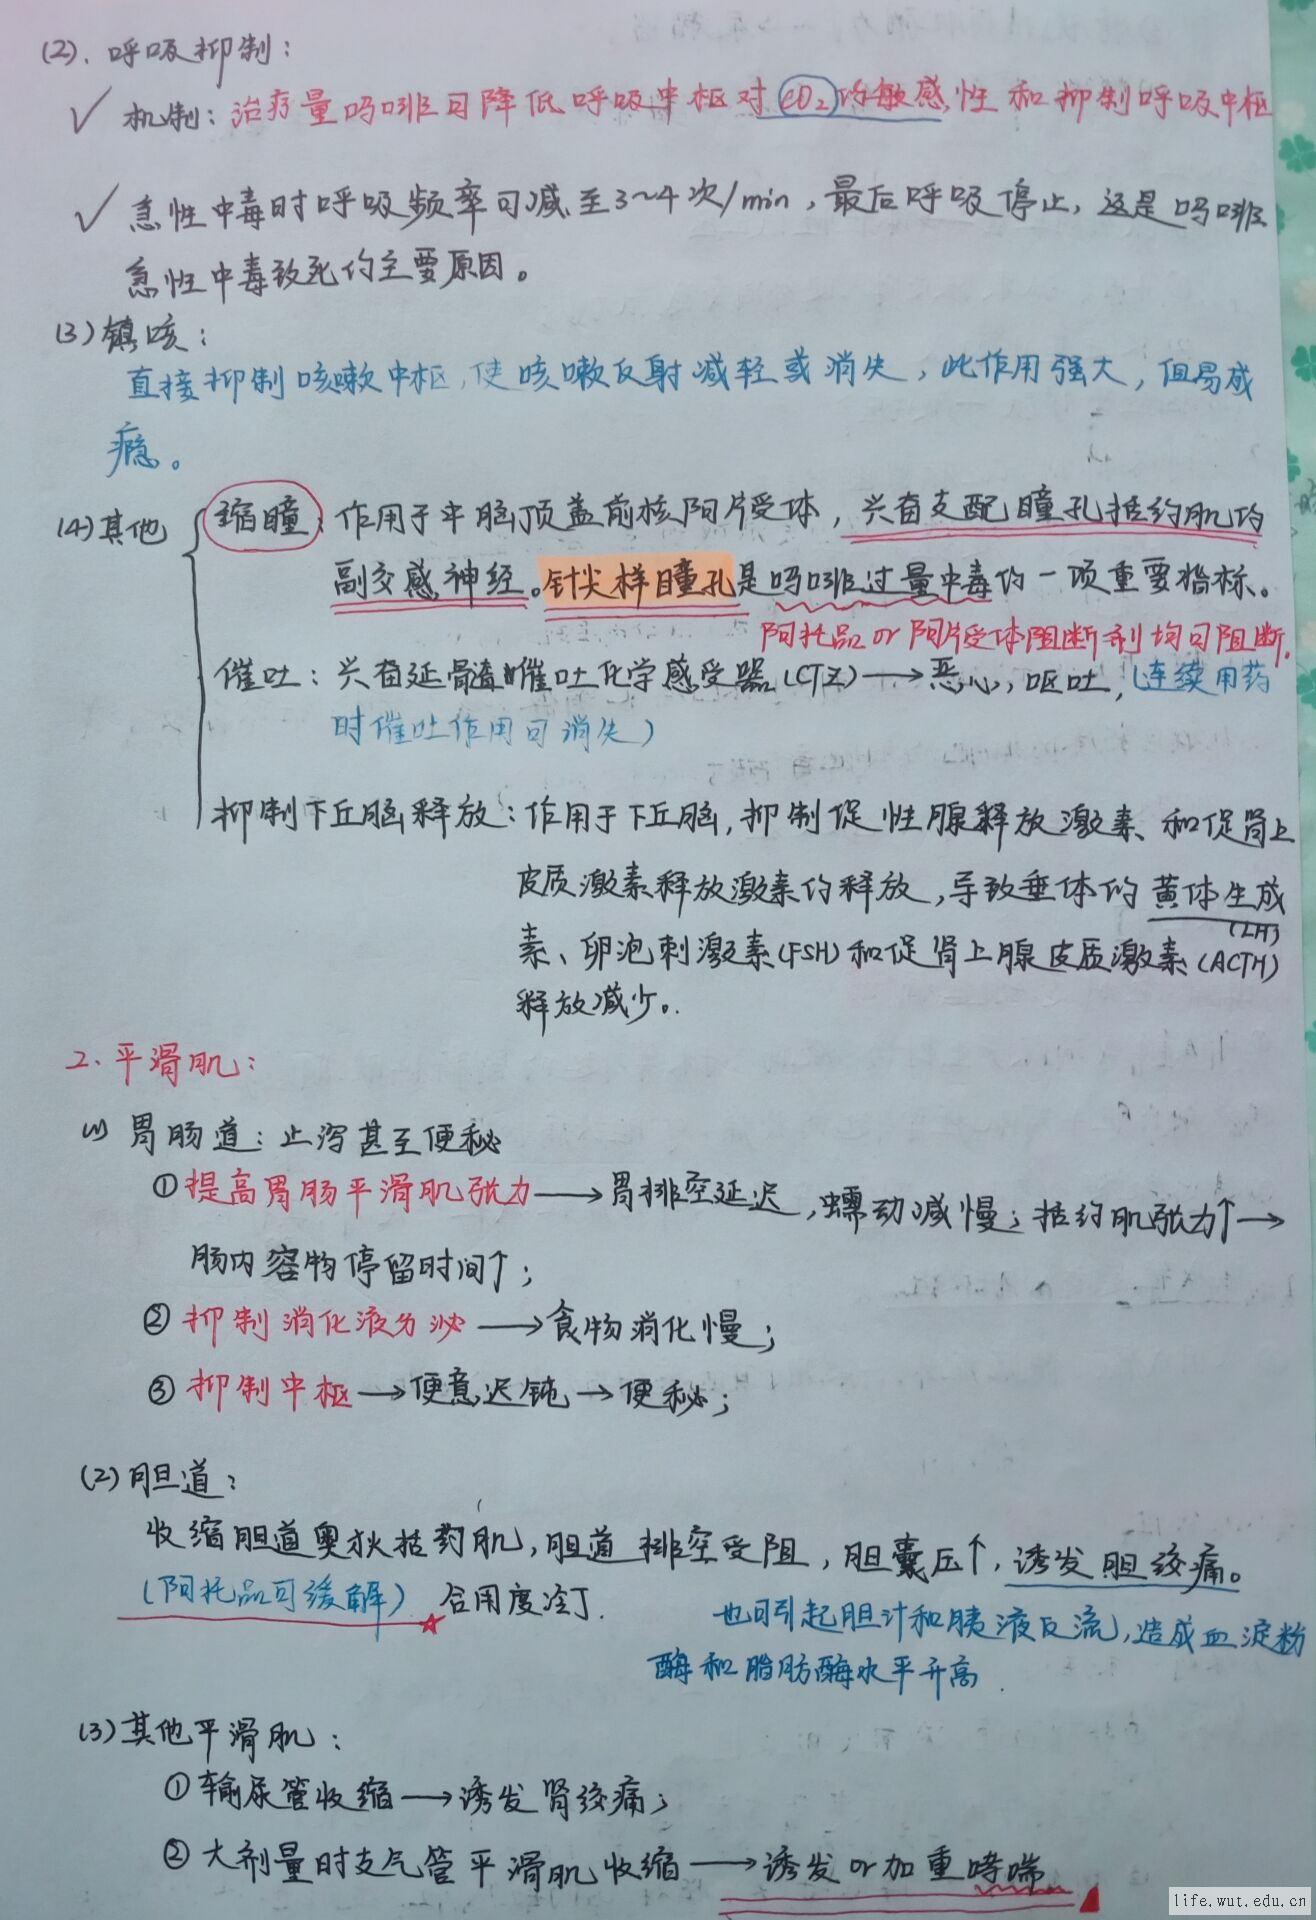 (2). 呼吸抑制:
✓ 机制: 治疗量吗啡可降低呼吸中枢对CO₂的敏感性和抑制呼吸中枢
✓ 急性中毒时呼吸频率可减至3~4次/min, 最后呼吸停止, 这是吗啡
急性中毒致死的主要原因。
(3) 镇咳:
直接抑制咳嗽中枢, 使咳嗽反射减轻或消失, 此作用强大, 但易成
瘾。
(4) 其他
缩瞳: 作用于中脑顶盖前核阿片受体, 兴奋支配瞳孔括约肌的
副交感神经。针尖样瞳孔是吗啡过量中毒的一项重要指标。
阿托品or阿片受体阻断剂均可阻断.
催吐: 兴奋延髓催吐化学感受器(CTZ)→恶心, 呕吐, (连续用药
时催吐作用可消失)
抑制下丘脑释放: 作用于下丘脑, 抑制促性腺释放激素、和促肾上
皮质激素释放激素的释放, 导致垂体的黄体生成
(LH)
素、卵泡刺激素(FSH)和促肾上腺皮质激素(ACTH)
释放减少。
2. 平滑肌:
(1) 胃肠道: 止泻甚至便秘
① 提高胃肠平滑肌张力→胃排空延迟, 蠕动减慢; 括约肌张力↑→
肠内容物停留时间↑;
② 抑制消化液分泌→食物消化慢;
③ 抑制中枢→便意迟钝→便秘;
(2) 胆道:
收缩胆道奥狄括约肌, 胆道排空受阻, 胆囊压↑, 诱发胆绞痛。
(阿托品可缓解) ☆合用度冷丁.
也可引起胆汁和胰液反流, 造成血淀粉
酶和脂肪酶水平升高.
(3) 其他平滑肌:
① 输尿管收缩→诱发肾绞痛;
② 大剂量时支气管平滑肌收缩→诱发or加重哮喘
life.wut.edu.cn